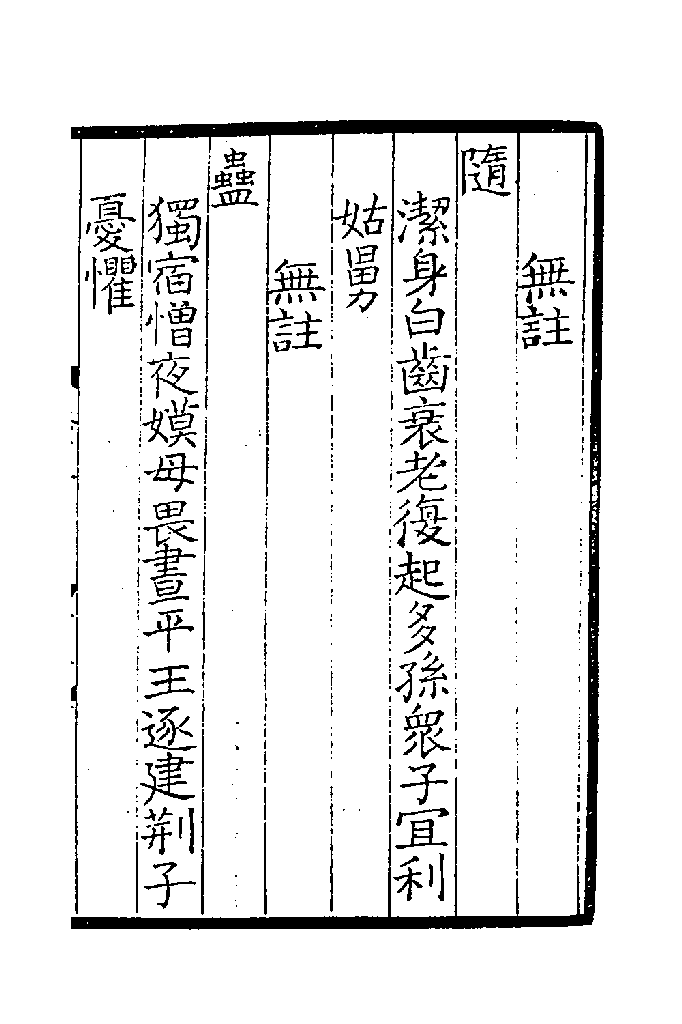 無註
隨
潔身白齒衰老復起多孫眾子宜利
姑舅
無註
蠱
獨宿憎夜嫫母畏晝平王逐建荆子
憂懼